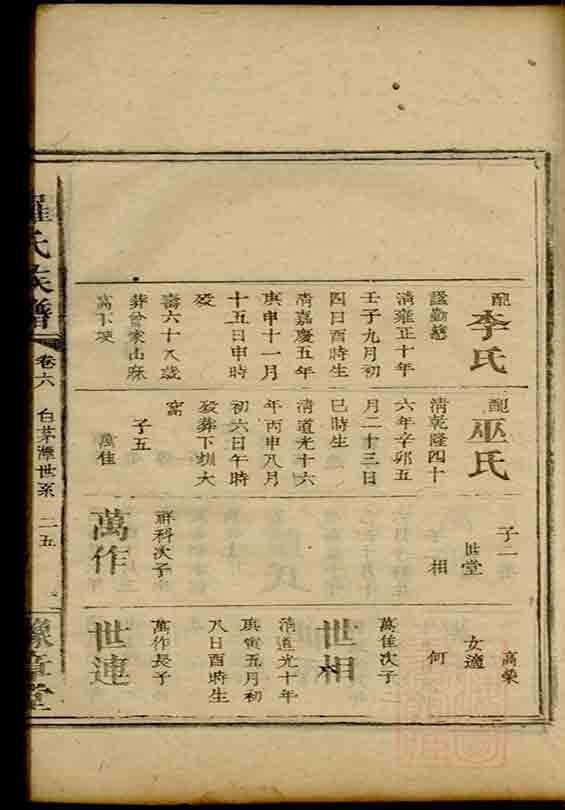 配李氏
謹勤慈
清雍正十年
壬子九月初
四日酉時生
清嘉慶五年
庚申十一月
十五日申時
歿
壽六十八歲
葬曾家山麻
窩下埂
配巫氏
清乾隆四十
六年辛卯五
月二十三日
巳時生
清道光十六
年丙申八月
初六日午時
歿葬下圳大
窩
子五
萬佳
子二
世堂
相
祥科次子
萬作
高榮
女適
何
萬佳次子
世相
清道光十年
庚寅五月初
八日酉時生
萬作長子
世連
羅氏族譜
卷六
白茅潭世系
二五
豫章堂